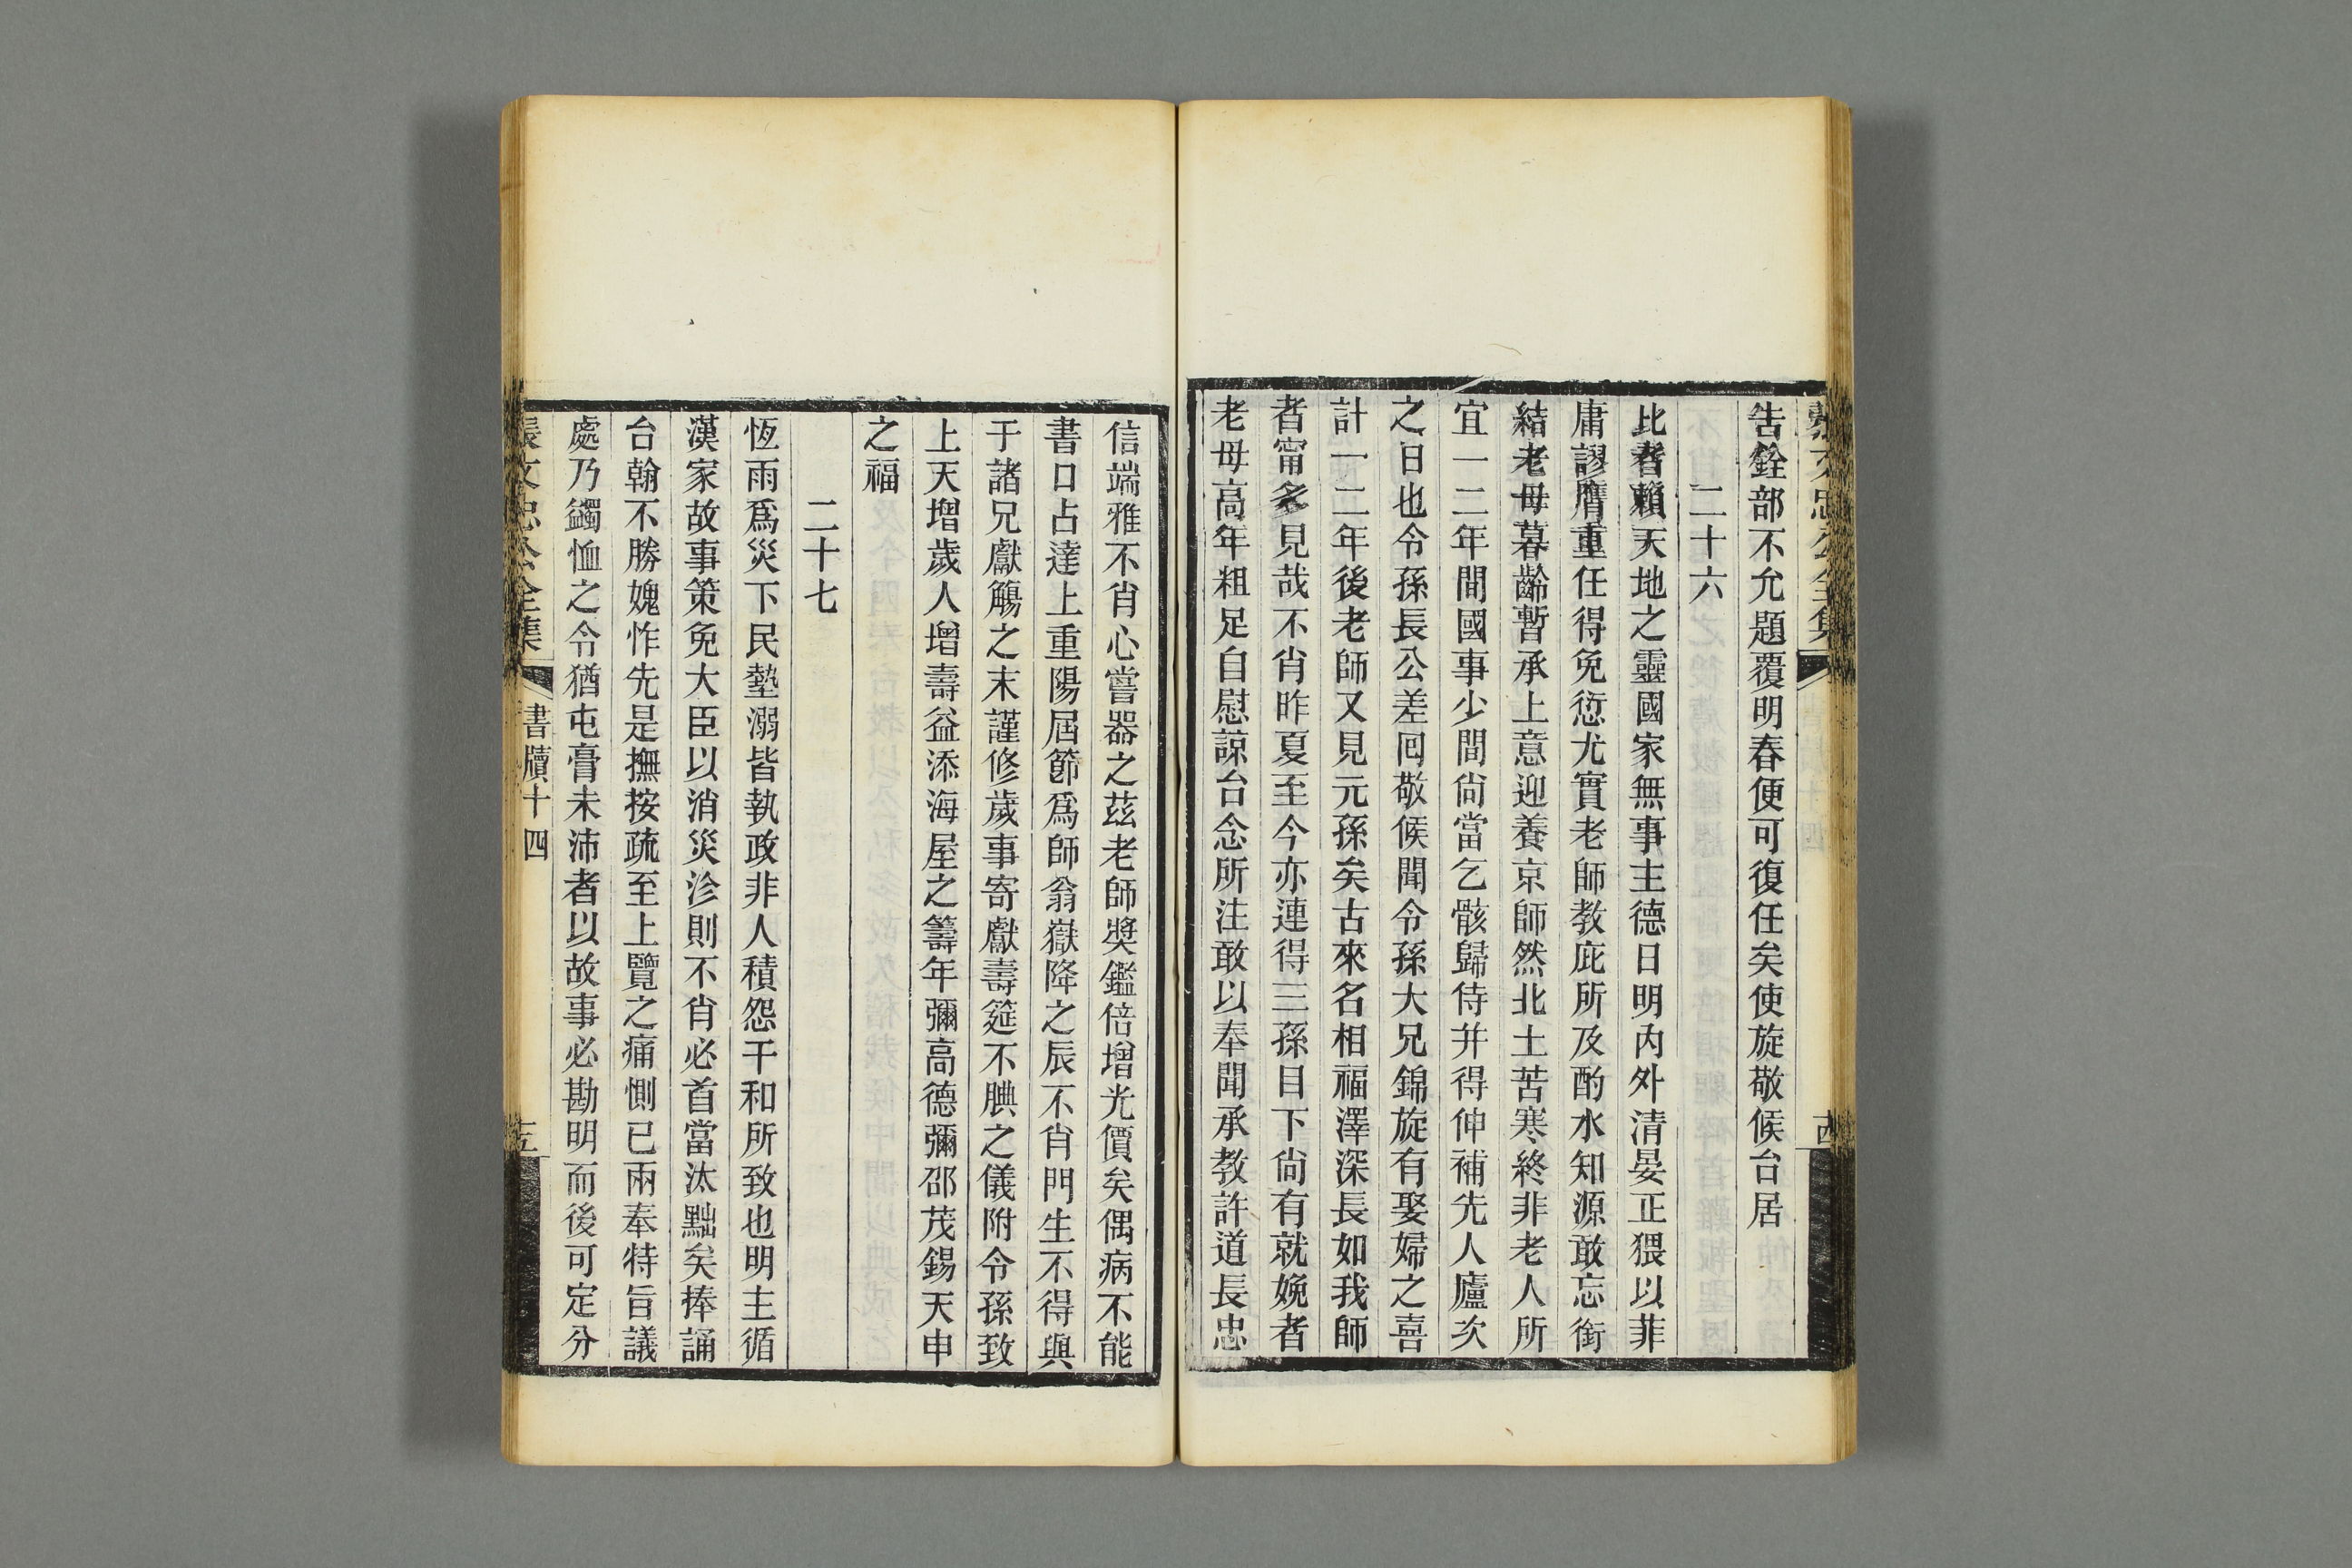 告銓部不允題覆明春便可復任矣使旋敬候台居
二十六
比者賴天地之靈國家無事主德日明內外清晏正猥以菲
庸謬膺重任得免愆尤實老師教庇所及酌水知源敢忘銜
結老母暮齡暫承上意迎養京師然北土苦寒終非老人所
宜一二年間國事少間尙當乞骸歸侍幷得伸補先人廬次
之日也令孫長公差回敬候聞令孫大兄錦旋有娶婦之喜
計一二年後老師又見元孫矣古來名相福澤深長如我師
者甯多見哉不肖昨夏至今亦連得三孫目下尙有就娩者
老母高年粗足自慰諒台念所注敢以奉聞承教許道長忠
信端雅不肖心嘗器之茲老師獎鑑倍增光價矣偶病不能
書口占達上重陽屆節爲師翁嶽降之辰不肖門生不得與
于諸兄獻觴之末謹修歲事寄獻壽筵不腆之儀附令孫致
上天增歲人增壽益添海屋之籌年彌高德彌邵茂錫天申
之福
二十七
恆雨爲災下民墊溺皆執政非人積怨干和所致也明主循
漢家故事策免大臣以消災沴則不肖必首當汰黜矣捧誦
台翰不勝媿怍先是撫按疏至上覽之痛惻已兩奉特旨議
處乃蠲恤之令猶屯膏未沛者以故事必勘明而後可定分
張文忠公全集
書牘十四